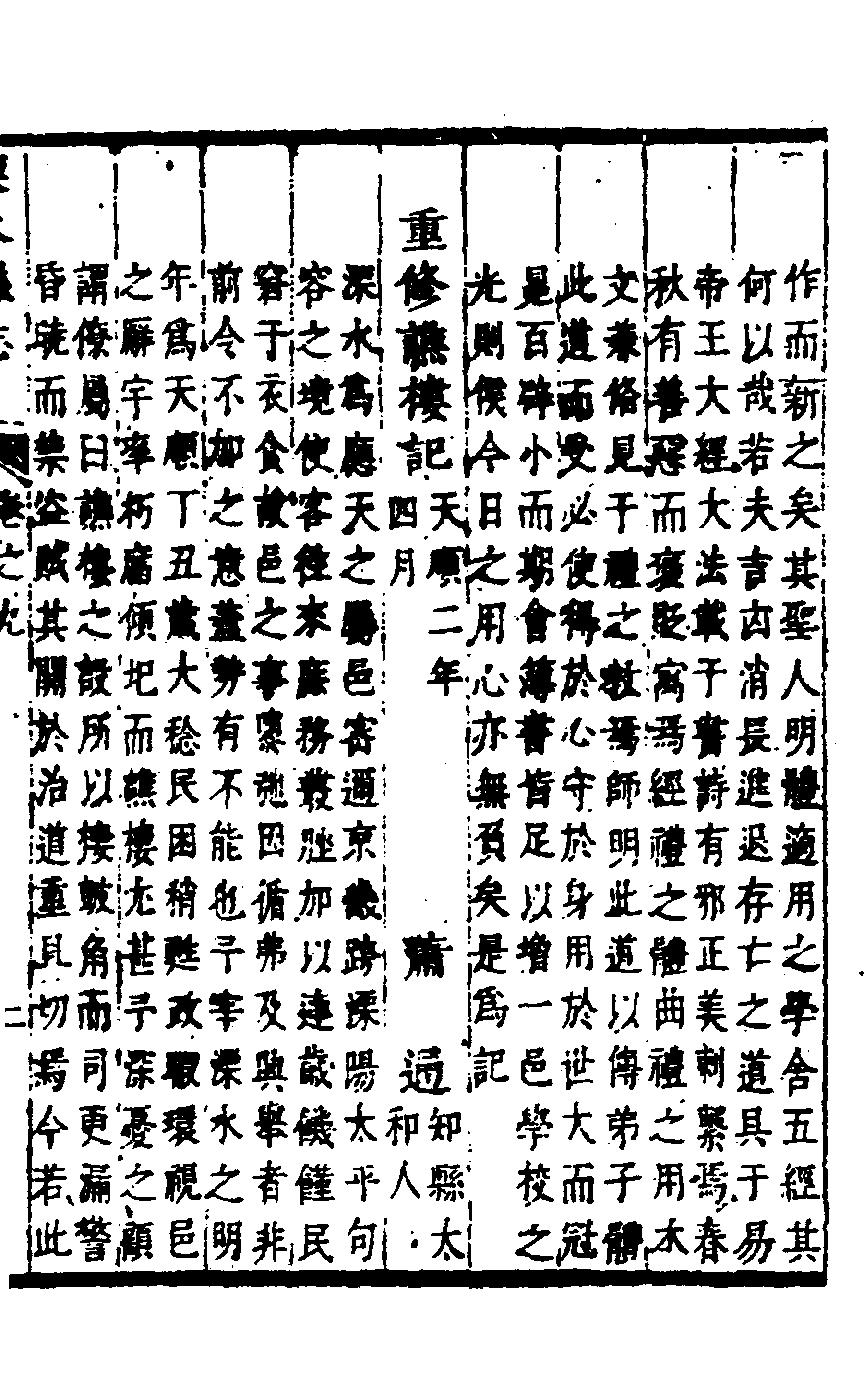 作而新之矣其聖人明體適用之學舍五經其
何以哉若夫吉凶消長進退存亡之道具于易
帝王大經大法載于書詩有邪正美刺繫焉春
秋有善惡而褒貶寓焉經禮之體曲禮之用本
文兼備見于禮之教焉師明此道以傳弟子體
此道而受必使得於心守於身用於世大而冠
是百辟小而期會簿書皆足以增一邑學校之
光則僕今日之用心亦無負矣是爲記
重修譙樓記 天順二年四月 蕭 通 知縣太和人
溧水爲應天之屬邑密邇京畿跨溧陽太平句
容之境使客徃來庶務叢脞加以連歲饑饉民
窘于衣食故邑之事隳弛因循弗及興舉者非
前令不加之意蓋勢有不能也予宰溧水之明
年爲天順丁丑歲大稔民困稍甦政暇環視邑
之廨宇率朽腐傾圯而譙樓尤甚予深憂之顧
謂僚屬曰譙樓之設所以摟鼓角而司更漏警
昏曉而禁盜賊其關於治道重且切焉今若此
卷之九 二